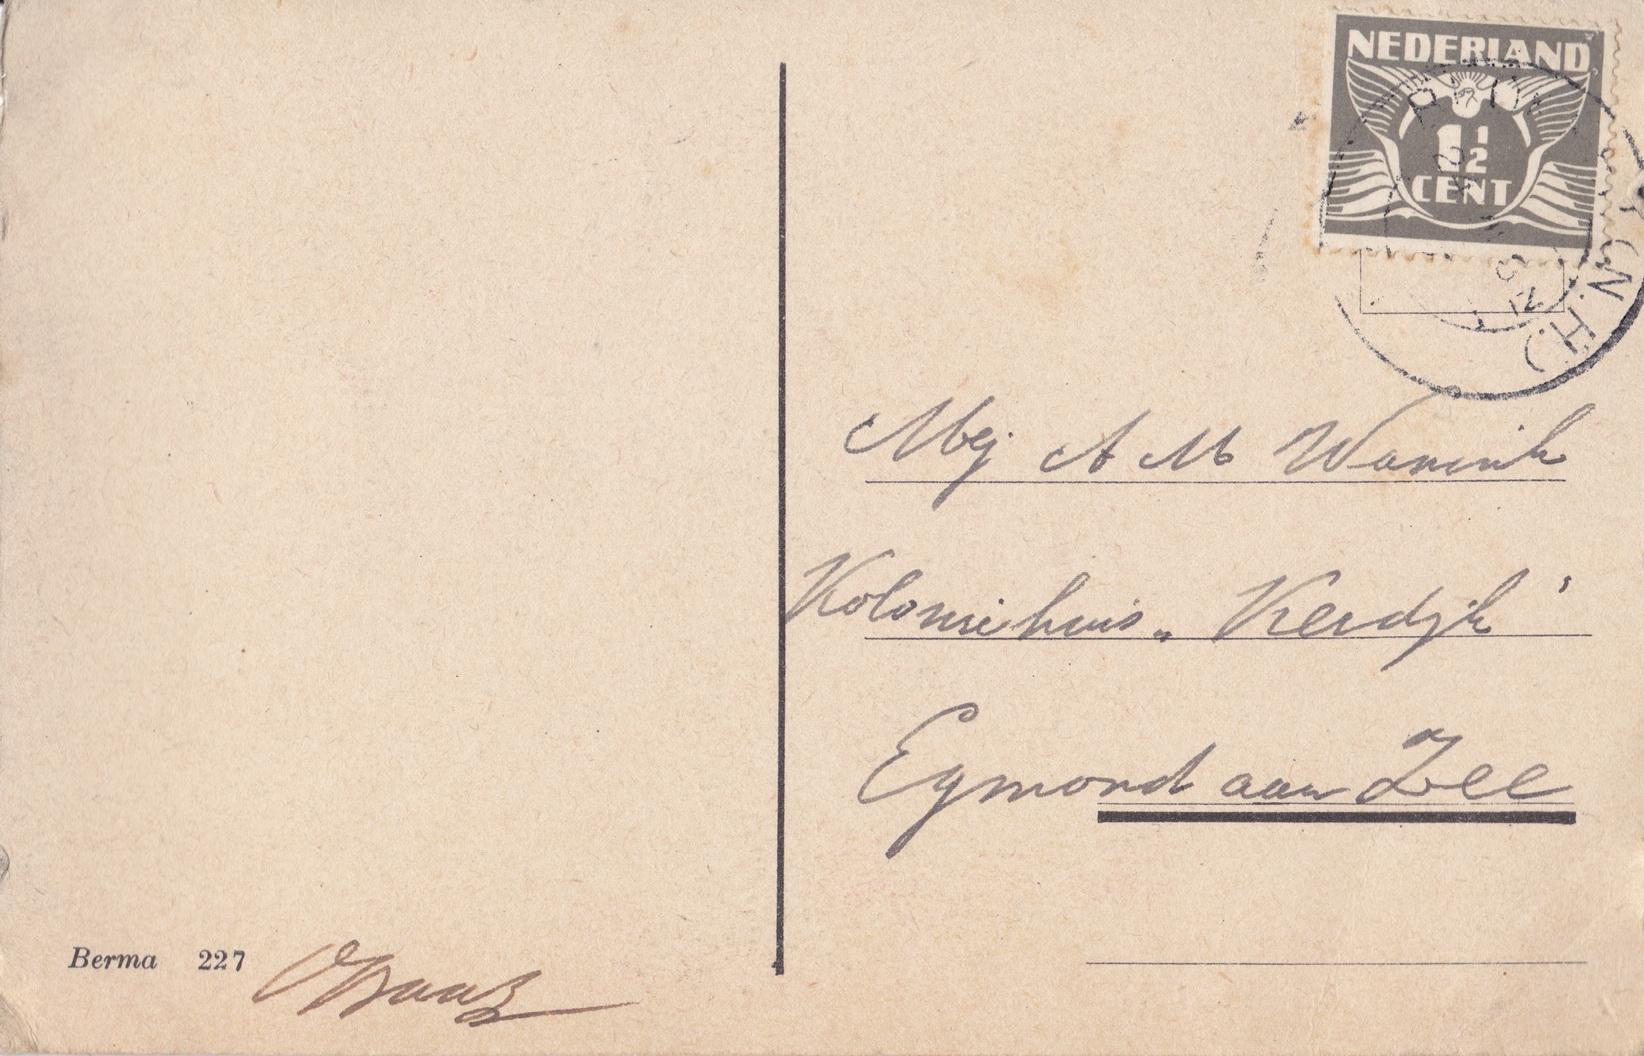 NEDERLAND
1½
CENT
(N.H.)
Mej A M Wanink
Koloniehuis „Kerdijk"
Egmond aan Zee
Berma 227